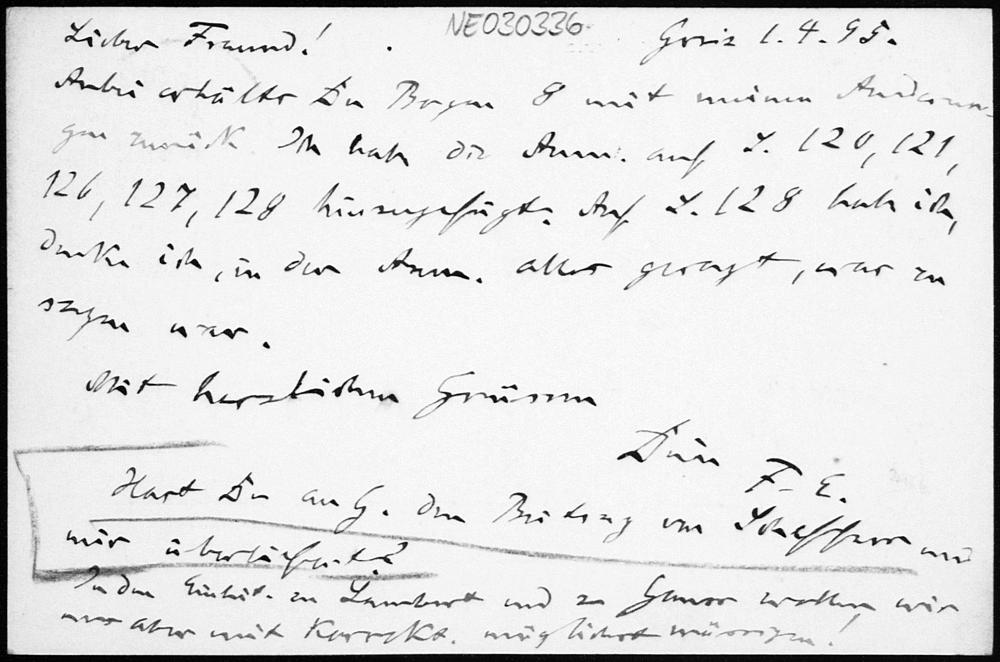 NE030336
Lieber Freund! Goriz 1. 4. 95.
Anbei erhälts Du Bogen 8 mit meinen Änderun-
gen zurück. Ich habe die Anm. auf S. 120, 121,
126, 127, 128 hinzugefügt. Auf S. 128 habe ich,
denke ich, in der Anm. alles gesagt, was zu
sagen war.
Mit herzlichen Grüssen
Dein
F. E.
Hast Du an G. den Beitrag von Stäckel und
mir überliefert?
In den Einleit. zu Lambert und zu Gauss wollen wir
uns aber mit Korrekt. möglichst mässigen!